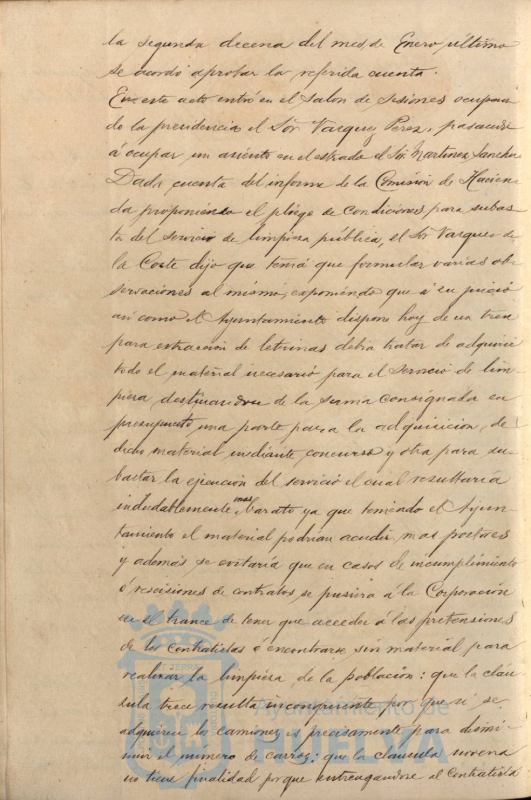 la segunda decena del mes de Enero último
se acordó aprobar la referida cuenta.
En este acto entró en el Salon de Sesiones ocupan
do la presidencia el Sor. Vazquez Perez, pasando
á ocupar un asiento en el estrado el Sr. Martinez Sanchez
Dada cuenta del informe de la Comisión de Hacien-
da proponiendo el pliego de condiciones para subas-
ta del servicio de limpieza pública, el Sor Vazquez de
la Corte dijo que tenia que formular varias ob-
servaciones al mismo, exponiendo que á su juicio
asi como el Ayuntamiento dispone hoy de un tren
para extracción de letrinas debia tratar de adquirir
todo el material necesario para el servicio de lim-
pieza, destinandose de la suma consignada en
presupuesto una parte para la adquisicion, de
dicho material mediante concurso y otra para su-
bastar la ejecución del servicio el cual resultaría
indudablemente mas barato ya que teniendo el Ayun-
tamiento el material podrian acudir, mas postores
y además se evitaria que en casos de incumplimiento
ó rescisiones de contratos, se pusiera á la Corporación
en el trance de tener que acceder á las pretensiones
de los contratistas ó encontrarse sin material para
realizar la limpieza de la población: que la cláu
sula trece resulta incongruente por que si se
adquieren los camiones es precisamente para dismi-
nuir el número de carros: que la clausula novena
no tiene finalidad porque entregandose al Contratista
Ayuntamiento de
HUELVA